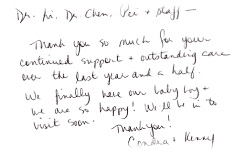 Dr. Ari, Dr. Chen, Pei + staff —
Thank you so much for your
continued support + outstanding care
over the last year and a half.
We finally have our baby boy +
we are so happy! We'll be in to
visit soon.
Thank you!
Kenny